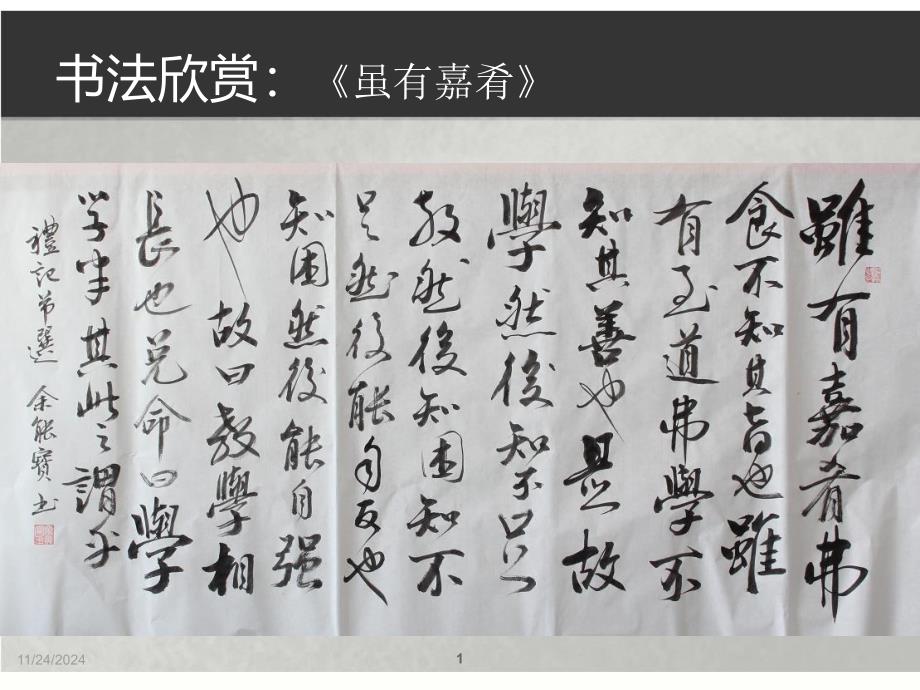 书法欣赏：《虽有嘉肴》
雖有嘉肴弗
食不知其旨也雖
有至道弗學不
知其善也是故
學然後知不足
教然後知困知不
足然後能自反也
知困然後能自强
也故曰教學相
長也兑命曰學
学半其此之謂乎
禮記节選 余能寶书
11/24/2024
1